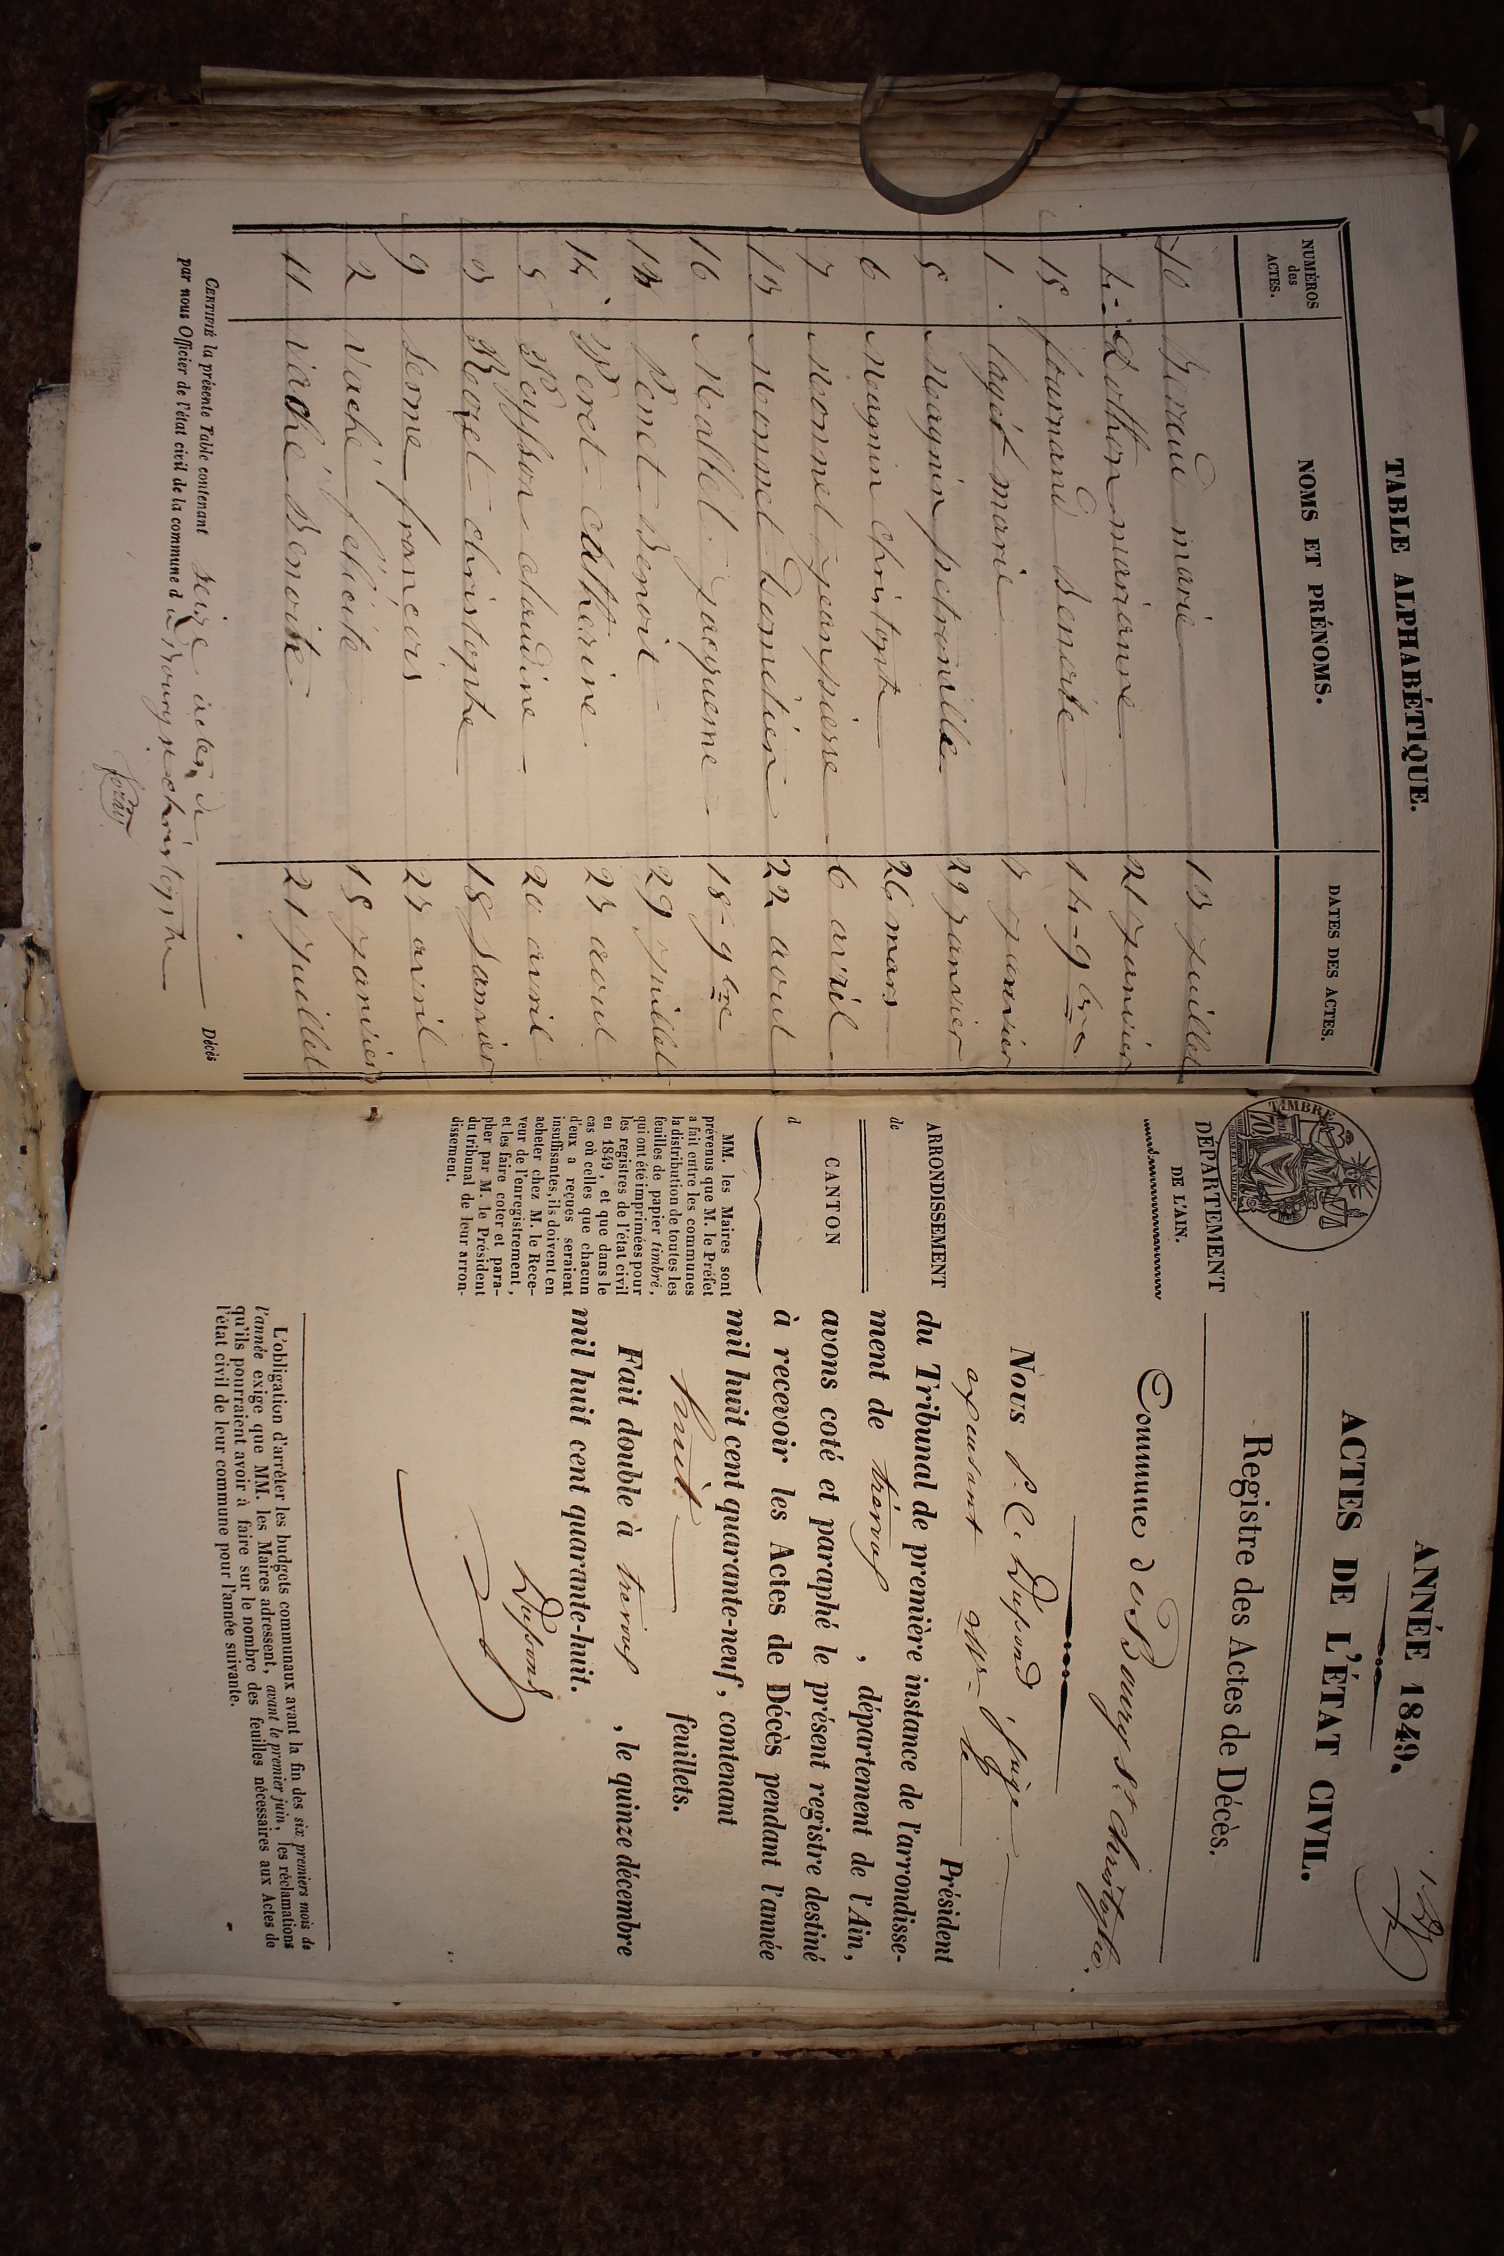 TABLE ALPHABÉTIQUE.
NUMÉROS des ACTES.
NOMS ET PRÉNOMS.
DATES DES ACTES.
10 Beraud marie 13 juillet
4 Dothon marianne 21 janvier
15 fournand Benoite 14 9bre
1 layet marie 7 janvier
5 Magnin petronille 29 janvier
6 Magnin christophe 26 mars
7 Monnet jeanpierre 6 avril
13 Monnet Dumitien 22 aout
16 Mallet jacqueme 18 9bre
12 Penet Benoit 29 juillet
14 Peret catherine 23 aout
8 Peysson claudine 20 avril
3 Rozet christophe 18 Janvier
9 Serne françois 23 avril
2 Vaché félicité 15 janvier
11 Vaché Benoite 21 juillet
CERTIFIÉ la présente Table contenant seize actes de Décès
par nous Officier de l'état civil de la commune d de Bourg st christophe
TIMBRE
DÉPARTEMENT
DE L'AIN.
ARRONDISSEMENT
de
CANTON
d
MM. les Maires sont
prévenus que M. le Préfet
a fait entre les communes
la distribution de toutes les
feuilles de papier timbré,
qui ont été imprimées pour
les registres de l'état civil
en 1849, et que dans le
cas où celles que chacun
d'eux a reçues seraient
insuffisantes, ils doivent en
acheter chez M. le Rece-
veur de l'enregistrement,
et les faire coter et para-
pher par M. le Président
du tribunal de leur arron-
dissement.
ANNÉE 1849.
ACTES DE L'ÉTAT CIVIL.
Registre des Actes de Décès.
Commune de Bourg St Christophe.
Nous P. C. Dupond juge
du Tribunal de première instance de l'arrondisse-
ment de trévoux, département de l'Ain,
avons coté et paraphé le présent registre destiné
à recevoir les Actes de Décès pendant l'année
mil huit cent quarante-neuf, contenant
huit feuillets.
Fait double à trévoux, le quinze décembre
mil huit cent quarante-huit.
Dupond
L'obligation d'arrêter les budgets communaux avant la fin des six premiers mois de
l'année exige que MM. les Maires adressent, avant le premier juin, les réclamations
qu'ils pourraient avoir à faire sur le nombre des feuilles nécessaires aux Actes de
l'état civil de leur commune pour l'année suivante.